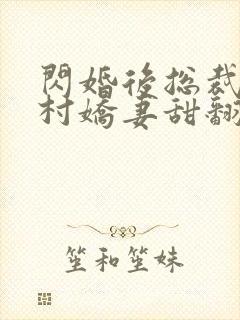 閃婚後總裁
村嬌妻甜翻
笙和笙妹